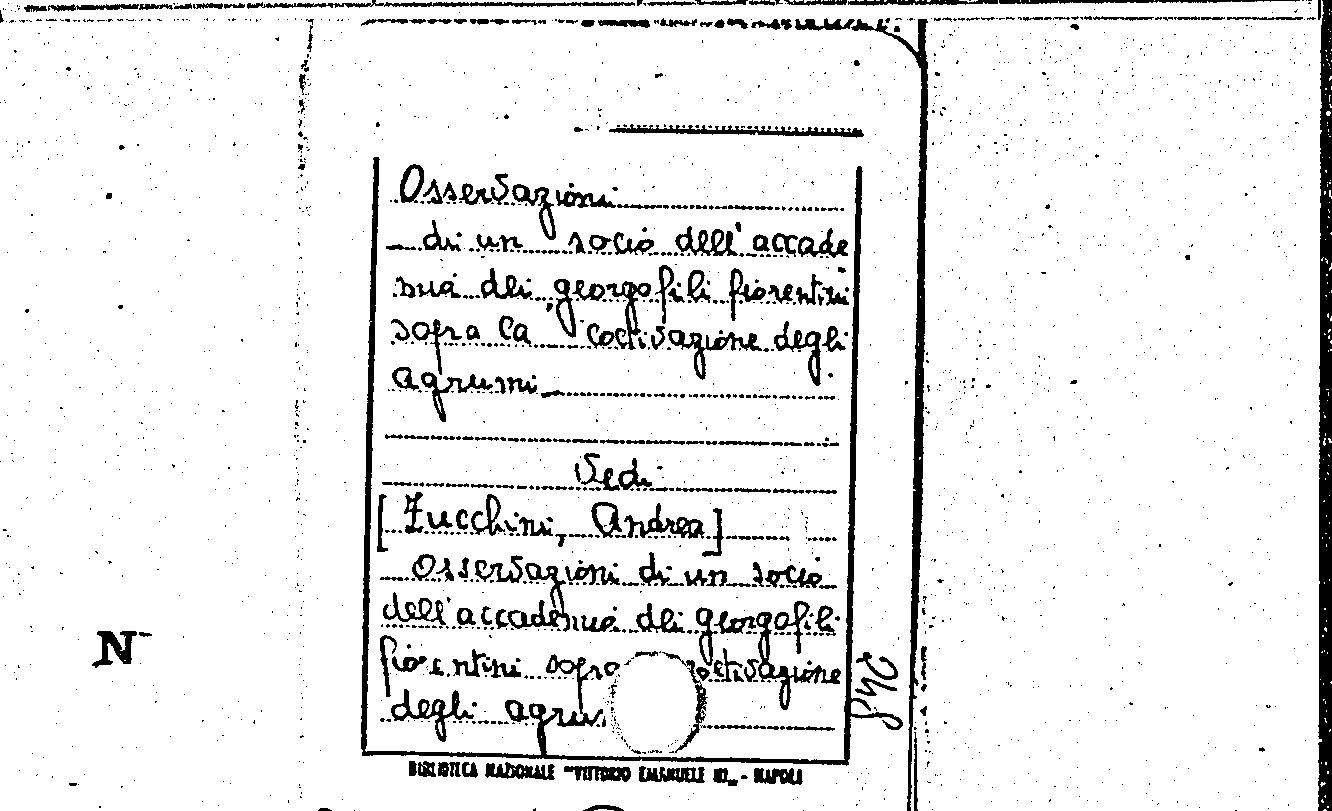 Osservazioni
di un socio dell'accade
mia dei georgofili fiorentini
sopra la coltivazione degli
agrumi
Vedi
[Zucchini, Andrea]
Osservazioni di un socio
dell'accademia dei georgofili
fiorentini sopra
degli
248
N
BIBLIOTECA NAZIONALE "VITTORIO EMANUELE III" - NAPOLI